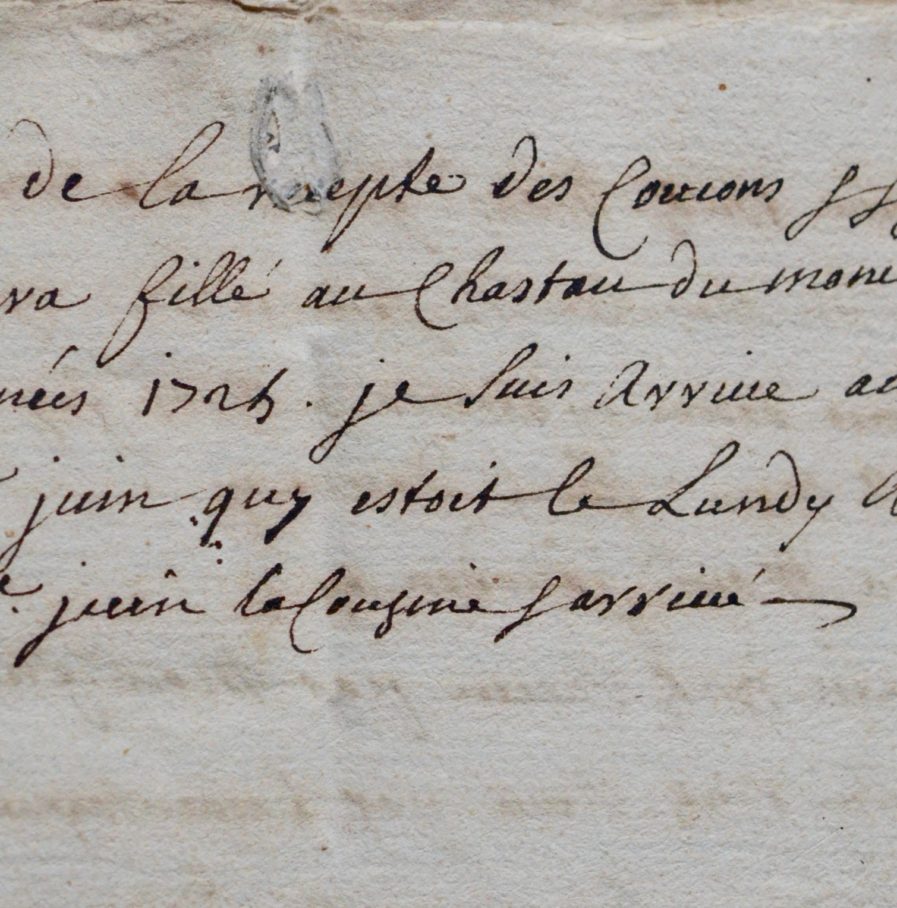 de la recepte des Coucons
ra fillé au Chastau du
nées 1725. je suis Arrive au
juin quy estoit le Lundy
juin la Cousine s arrivé